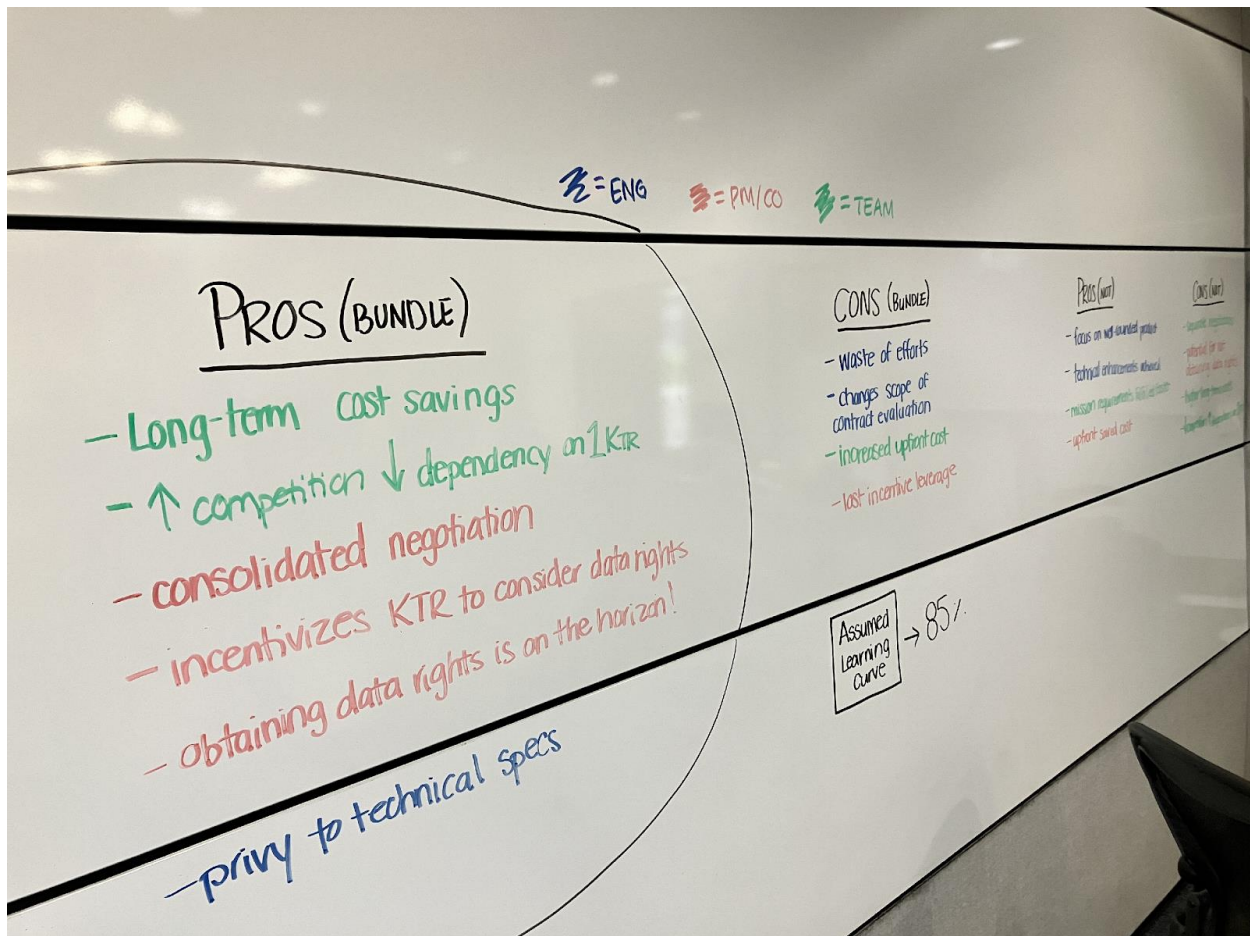 = ENG
= PM/CO
= TEAM
PROS (BUNDLE)
- Long-term cost savings
- ↑ competition ↓ dependency on 1 KTR
- consolidated negotiation
- incentivizes KTR to consider data rights
- obtaining data rights is on the horizon!
- privy to technical specs
CONS (BUNDLE)
- waste of efforts
- changes scope of
contract evaluation
- increased upfront cost
- lost incentive leverage
Assumed
Learning
Curve
→ 85%
PROS (NOT)
- focus on well-rounded product
- technical enhancements achieved
- mission requirements
- upfront saved cost
CONS (NOT)
- separate negotiations
- potential for not
obtaining data rights
- higher long-term cost